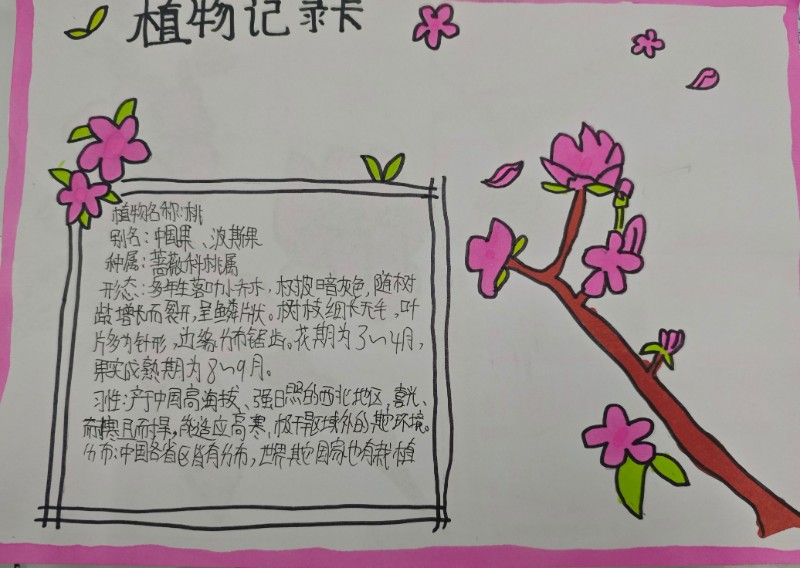 植物记录卡
植物名称:桃
别名:中国果、波斯果
种属:蔷薇科桃属
形态:多年生落叶小乔木,树皮暗灰色,随树
龄增长而裂开,呈鳞片状。树枝细长无毛,叶
片多为针形,边缘分布锯齿。花期为3~4月,
果实成熟期为8~9月。
习性:产于中国高海拔、强日照的西北地区,喜光、
耐寒且耐旱,能适应高寒,极干旱区域外的其它环境。
分布:中国各省区皆有分布,世界其它国家也有栽植